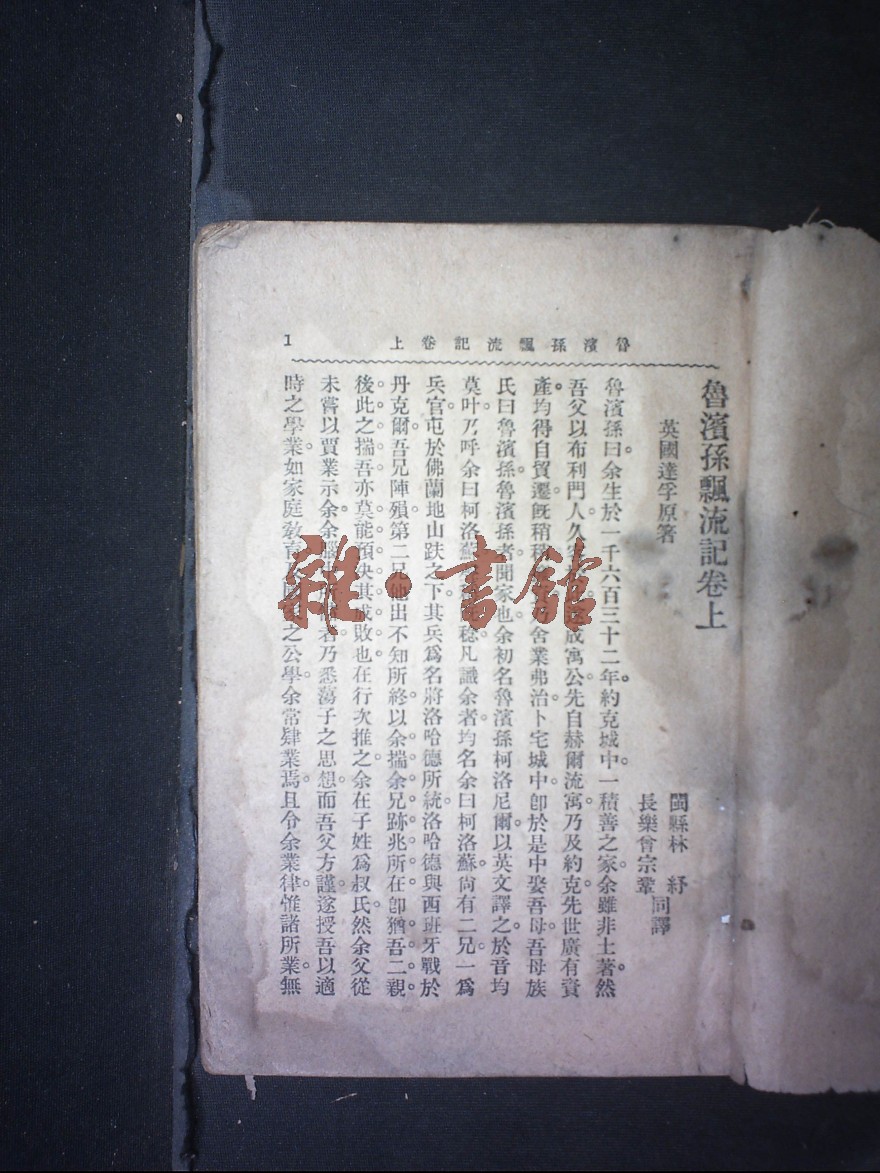 魯濱孫飄流記卷上
1
魯濱孫飄流記卷上
英國達孚原著
閩縣林紓
長樂曾宗鞏
同譯
魯濱孫曰。余生於一千六百三十二年。約克城中。一積善之家。余雖非土著。然
吾父以布利門人久客成寓公。先自赫爾流寓。乃及約克。先世廣有資
產。均得自貿遷。旣稍舍業弗治。卜宅城中。卽於是中娶吾母。吾母族
氏曰魯濱孫。魯濱孫者。聞家也。余初名魯濱孫柯洛尼爾。以英文譯之。於音均
莫叶。乃呼余曰柯洛蘇。稔。凡識余者。均名余曰柯洛蘇。尙有二兄。一爲
兵官。屯於佛蘭地山趺之下。其兵爲名將洛哈德所統。洛哈德與西班牙戰於
丹克爾。吾兄陣殞。第二兄他出。不知所終。以余揣余兄跡兆所在。卽猶吾二親。
後此之揣吾。亦莫能預決其成敗也。在行次推之。余在子姓爲叔氏。然余父從
未嘗以賈業示余。余腦者。乃悉蕩子之思想。而吾父方謹。遂授吾以適
時之學業。如家庭敎育之公學。余常肄業焉。且令余業律。惟諸所業。無
雜·書館